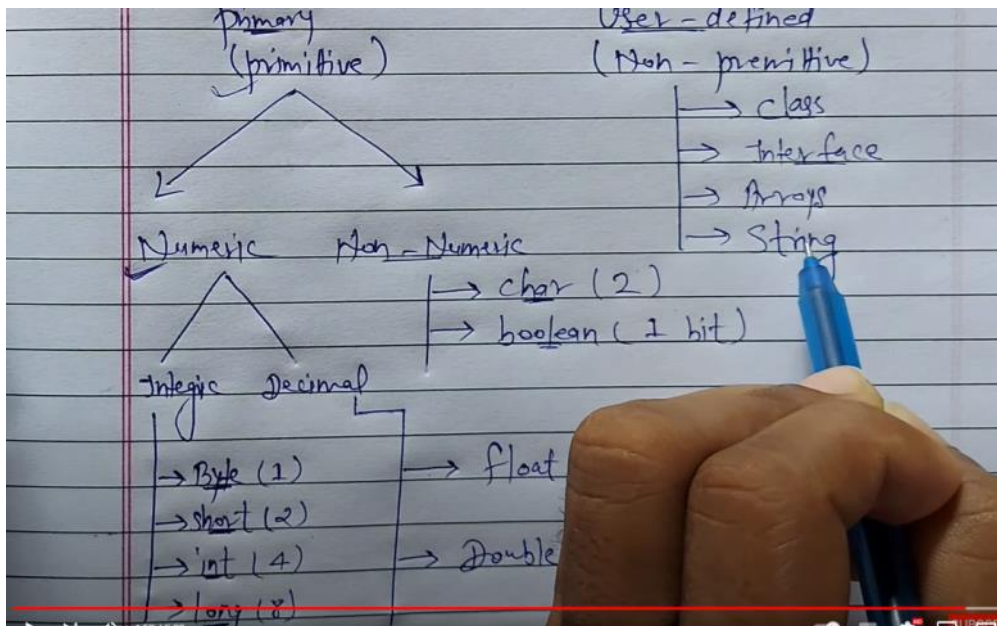 Primary
(primitive)
User-defined
(Non-premitive)
→ class
→ Interface
→ Arrays
→ String
Numeric
Non-Numeric
→ char (2)
→ boolean (1 bit)
Integic
Decimal
→ Byte (1)
→ short (2)
→ int (4)
→ long (8)
→ float
→ Double